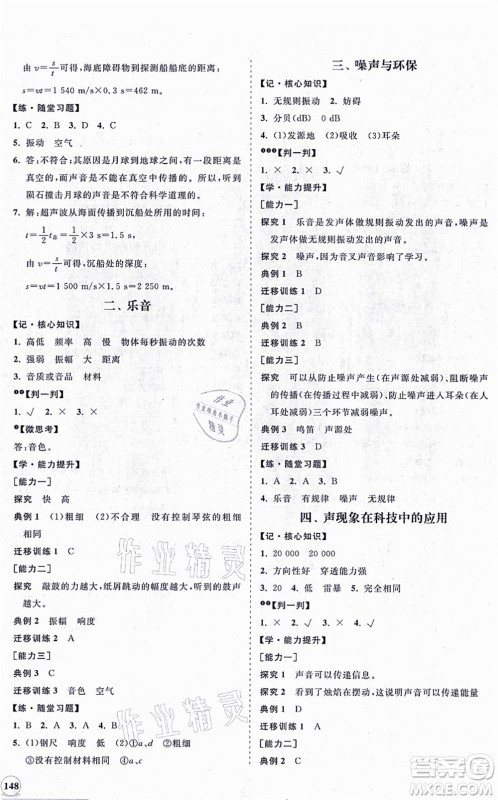 由 v=s/t可得,海底障碍物到探测船船底的距离:
s=vt=1 540 m/s×0.3 s=462 m.
【练·随堂习题】
1. C 2. B 3. D 4. A
5. 振动 空气
6. 答:不符合;其原因是月球与地球之间的距离是
真空的,而声音是不能在真空中传播的,所以听到
陨石撞击月球的声音不符合科学道理的.
7. 解:超声波从海面传播到沉船处所用的时间:
t=1/2 t总=1/2×3 s=1.5 s,
由 v=s/t可得,沉船处的深度:
s=vt=1 500 m/s×1.5 s=2 250 m.
二、乐音
【记·核心知识】
1. 高低 频率 高 慢 物体每秒振动的次数
2. 强弱 振幅 大 距离
3. 音质或音品 材料
【判一判】
1. × 2. × 3. ×
【微思考】
答:音色.
【学·能力提升】
[能力一]
探究 快 高
典例 1 (1)粗细 (2)不合理 没有控制琴弦的粗细
相同
迁移训练 1 C
[能力二]
探究 敲鼓的力越大,纸屑跳动的幅度越大,响度
越大.
典例 2 振幅 响度
迁移训练 2 A
[能力三]
典例 3 D
迁移训练 3 音色 空气
【练·随堂习题】
1. B 2. A 3. D 4. A
5. (1)钢尺 响度 低 (2)①a、d ②粗细
③没有控制材料相同 (3)c、d
148
三、噪声与环保
【记·核心知识】
1. 无规则振动 2. 妨碍
3. 分贝(dB) 0 dB
4. (1)发源地 (2)吸收 (3)耳朵
【判一判】
1. × 2. × 3. √
【学·能力提升】
[能力一]
探究 1 乐音是发声体做规则振动发出的声音,噪
声是发声体做无规则振动发出的声音.
探究 2 噪声,因为音叉声音影响了学习.
典例 1 C
迁移训练 1 D
[能力二]
典例 2 C
迁移训练 2 D
[能力三]
探究 可以防止噪声产生(在声源处减弱)、阻断噪声
的传播(在传播过程中减弱)、防止噪声进入人耳
(在人耳处减弱).
典例 3 鸣笛 声源处
迁移训练 3 B
【练·随堂习题】
1. A 2. C 3. D
4. 乐音 有规律 噪声 无规律
四、声现象在科技中的应用
【记·核心知识】
1. 20 000 20 000
2. 方向性好 穿透能力强
3. 20 4. 低 雷暴 5. 回声
【判一判】
1. × 2. √ 3. √
【学·能力提升】
[能力一]
探究 1 声音可以传递信息.
探究 2 看到了烛焰在摆动,这说明声音可以传递能量
典例 1 D
作业精灵
作业精灵
作业
精灵
答案圈